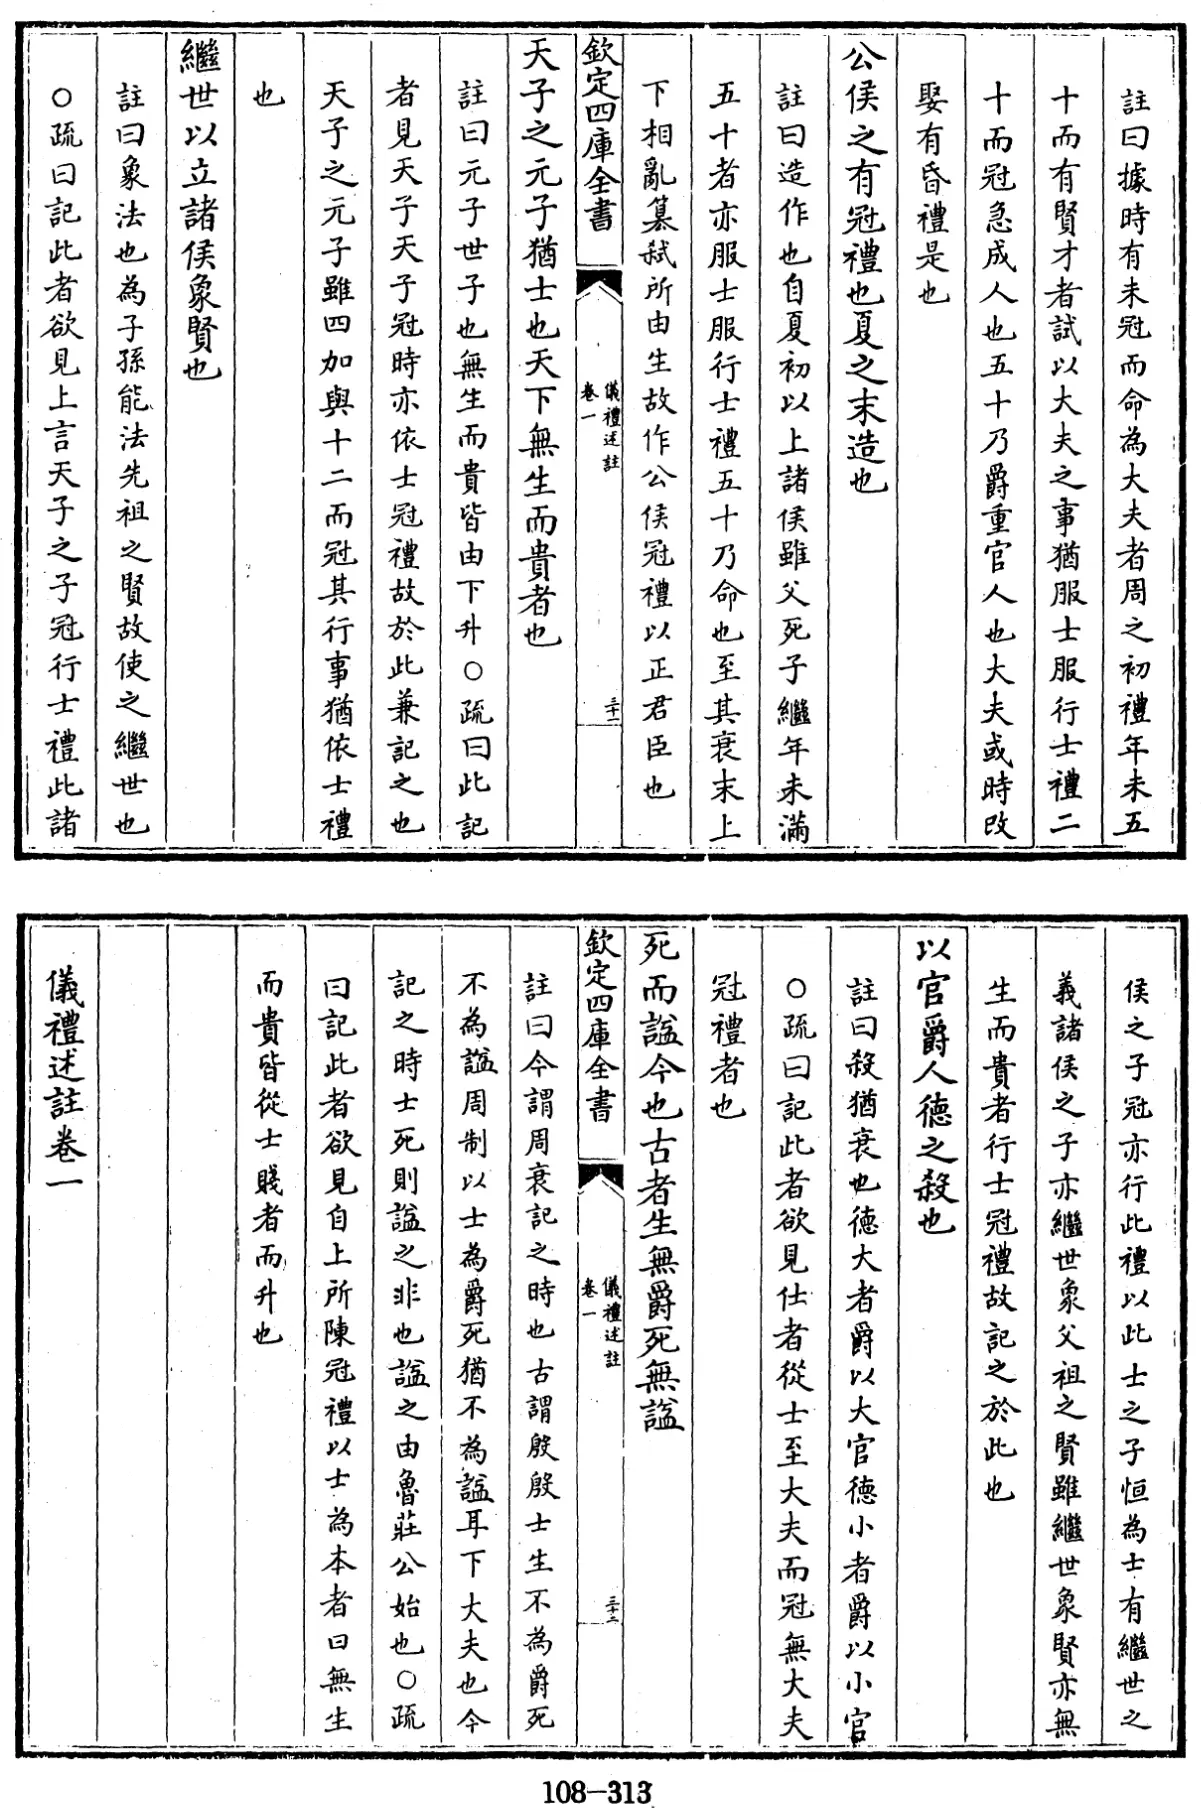 註曰據時有未冠而命為大夫者周之初禮年未五
十而有賢才者試以大夫之事猶服士服行士禮二
十而冠急成人也五十乃爵重官人也大夫或時改
娶有昏禮是也
公侯之有冠禮也夏之末造也
註曰造作也自夏初以上諸侯雖父死子繼年未滿
五十者亦服士服行士禮五十乃命也至其衰末上
下相亂篡弒所由生故作公侯冠禮以正君臣也
欽定四庫全書
儀禮述註
卷一
三十一
天子之元子猶士也天下無生而貴者也
註曰元子世子也無生而貴皆由下升○疏曰此記
者見天子天子冠時亦依士冠禮故於此兼記之也
天子之元子雖四加與十二而冠其行事猶依士禮
也
繼世以立諸侯象賢也
註曰象法也為子孫能法先祖之賢故使之繼世也
○疏曰記此者欲見上言天子之子冠行士禮此諸
侯之子冠亦行此禮以此士之子恒為士有繼世之
義諸侯之子亦繼世象父祖之賢雖繼世象賢亦無
生而貴者行士冠禮故記之於此也
以官爵人德之殺也
註曰殺猶衰也德大者爵以大官德小者爵以小官
○疏曰記此者欲見仕者從士至大夫而冠無大夫
冠禮者也
死而諡今也古者生無爵死無諡
欽定四庫全書
儀禮述註
卷一
三十二
註曰今謂周衰記之時也古謂殷殷士生不為爵死
不為諡周制以士為爵死猶不為諡耳下大夫也今
記之時士死則諡之非也諡之由魯莊公始也○疏
曰記此者欲見自上所陳冠禮以士為本者曰無生
而貴皆從士賤者而升也
儀禮述註卷一
108-313